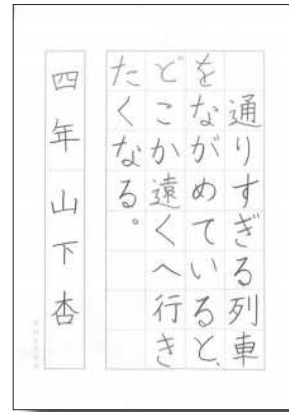 通りすぎる列車
をながめていると、
どこか遠くへ行き
たくなる。
四年 山下杏